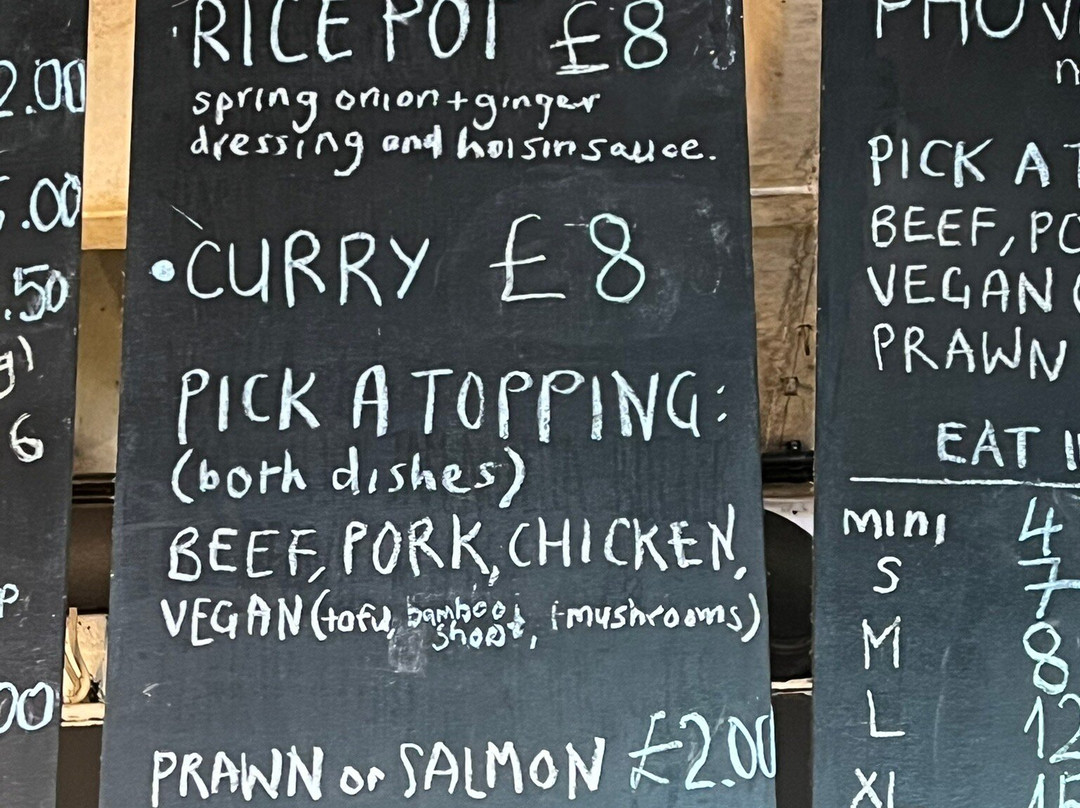 2.00
.00
.50
6
00
RICE POT £8
spring onion + ginger
dressing and hoisin sauce.
• CURRY £8
PICK A TOPPING:
(both dishes)
BEEF, PORK, CHICKEN,
VEGAN (tofu, bamboo shoot, + mushrooms)
PRAWN or SALMON £2.00
PICK A
BEEF,
VEGAN
PRAWN
EAT
mini 4
S 7
M 8
L 12